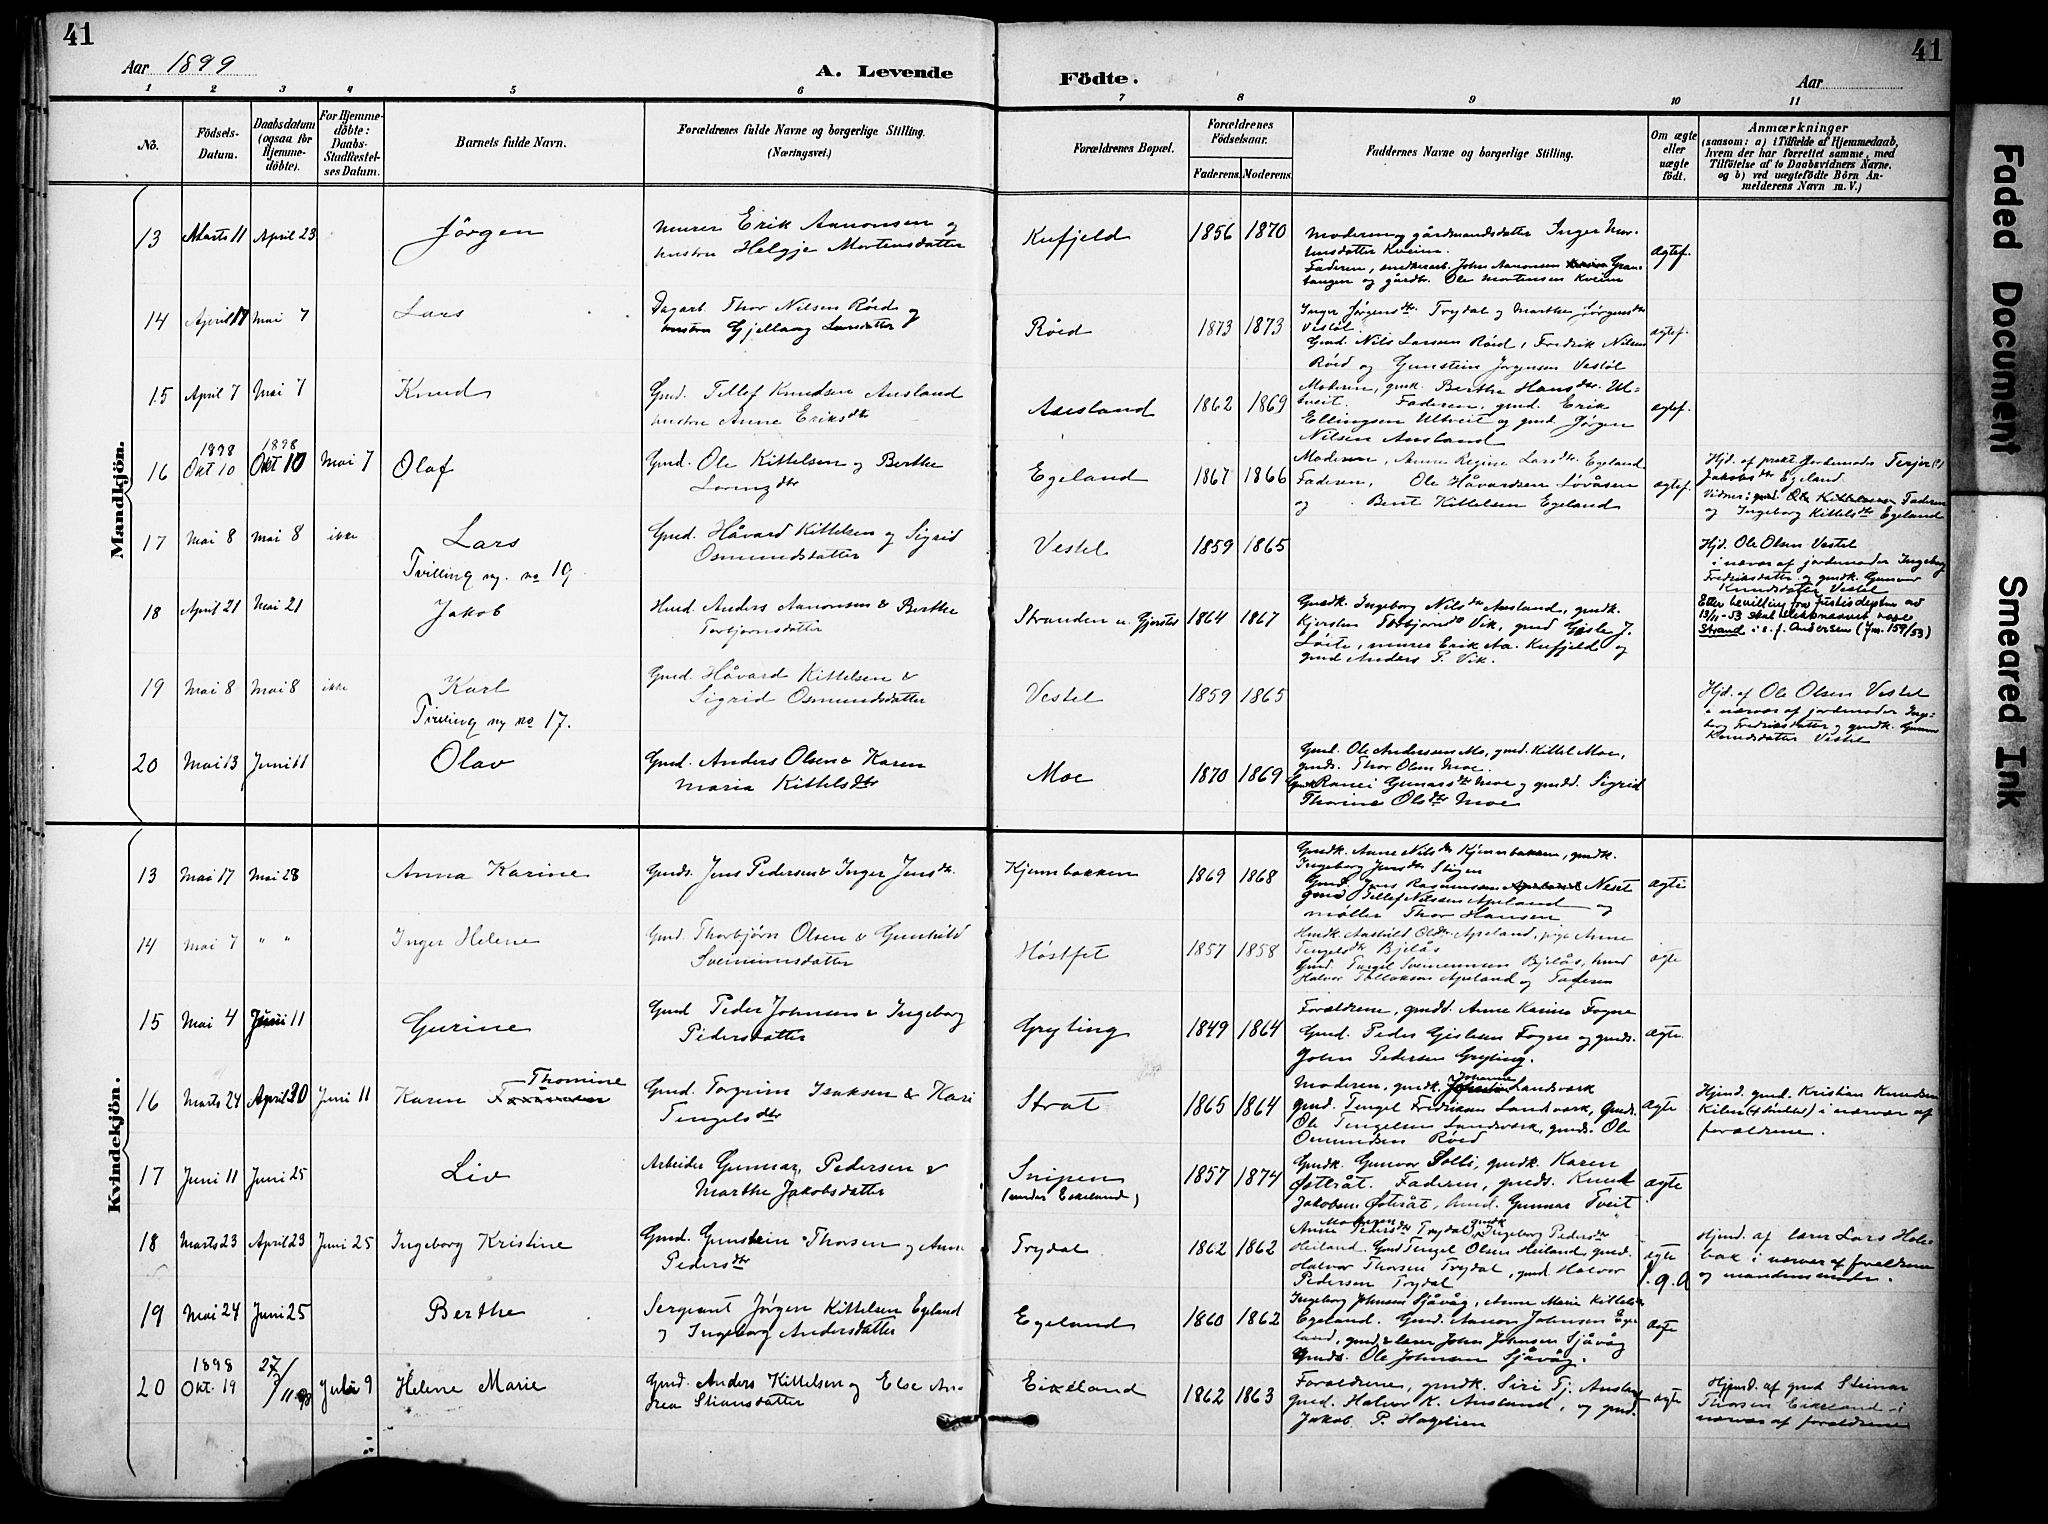 41
41
Aar 1899
A. Levende
Födte.
Aar
1 2 3 4 5 6 7 8 9 10 11
No.
Födsels-
Datum.
Daabsdatum
(ogsaa for
Hjemme-
döbte).
For Hjemme-
döbte:
Daabs-
Stadfæstel-
ses Datum.
Barnets fulde Navn.
Forældrenes fulde Navne og borgerlige Stilling.
(Næringsvei.)
Forældrenes Bopæl.
Forældrenes
Födselsaar.
Faderens. Moderens.
Faddernes Navne og borgerlige Stilling.
Om ægte
eller
uægte
födt.
Anmærkninger
(saasom: a) i Tilfælde af Hjemmedaab,
hvem der har forrettet samme, med
Tilföielse af to Daabsvidners Navne,
og b) ved uægtefödte Börn An-
melderens Navn m. V.)
Mandkjön.
13 Marts 11 April 23 Jörgen
murer Erik Aanonsen og
hustru Helgje Mortensdatter
Kufjeld 1856 1870
Moderen og gårdmandsdatter Inger Mor-
tensdatter Kveim
Faderen, snedkerarb. John Aanonsen Gran-
tangen og gårdbr. Ole Mortensen Kveim
ægtef.
14 April 17 Mai 7 Lars
Dagarb Thor Nilsen Röed og
hustru Gjellaug Larsdatter
Röed 1873 1873
Inger Jörgensdtr. Trydal og Marthe Jörgensdtr
Vestöl.
Gmd. Nils Larsen Röed, Fredrik Nilsen
Röed og Gunstein Jörgensen Vestöl
ægtef.
15 April 7 Mai 7 Knud
Gmd. Tellef Knudsen Ausland
hustru Anne Eriksdtr
Ausland 1862 1869
Moderen, gmk. Berthe Hansdtr. Ul-
tveit. Faderen, gmd. Erik
Ellingsen Ultveit og gmd. Jörgen
Nilsen Ausland
ægtef.
16 1898 Okt 10 1898 Okt 10 Mai 7 Olaf
Gmd. Ole Kittelsen og Berthe
Lorenzdtr
Egeland 1867 1866
Moderen, Anne Regine Larsdtr. Egeland
Faderen, Ole Håvardsen Lövåsen
og Bent Kittelsen Egeland
ægtef.
Hjd. af prakt. Jordemoder Terjer (?)
Jakobsdtr Egeland.
Vidner: Faderen
og Ingeborg Kittelsdtr Egeland
17 Mai 8 Mai 8 ikke Lars
Tvilling m. no 19
Gmd. Håvard Kittelsen og Sigrid
Osmundsdatter
Vestöl 1859 1865
Hjd. Ole Olsen Vestöl
i nærvær af jordemoder Ingeborg
Fredriksdatter og gmdk. Gunvor
Knudsdatter Vestöl
18 April 21 Mai 21 Jakob
Hmd. Anders Aanonsen & Berthe
Torbjörnsdatter
Stranden u. Gjerstad 1864 1867
Gmdk. Ingeborg Nilsdtr Ausland, gmdk.
Kjersten Torbjörnsd Vik, gmd Gisle J.
Löite, murer Erik Aa. Kufjeld og
gmd Anders P. Vik.
Etter bevilling fra Justisdeptm av
13/11-53 skal slektsnavnet være
Strand i s. f. Andersen (Jnr. 159/53)
19 Mai 8 Mai 8 ikke Karl
Tvilling m. no 17.
Gmd. Håvard Kittelsen &
Sigrid Osmundsdatter
Vestöl 1859 1865
Hjd. af Ole Olsen Vestöl
i nærvær af jordemoder Inge-
borg Fredriksdatter og gmdk. Gunvor
Knudsdatter Vestöl
20 Mai 13 Juni 11 Olav
Gmd. Anders Olsen & Karen
Maria Kittelsdtr
Moe 1870 1869
Gmd. Ole Andersen Mo, gmd. Kittel Moe,
gmds. Thor Olsen Moe.
Gmdk Ranei Gunarsdtr Moe og gmdd. Sigrid
Thorine Olsdtr Moe
Kvindekjön.
13 Mai 17 Mai 28 Anna Karine
Gmds. Jens Pedersen & Inger Jensdtr.
Kjennbakken 1869 1868
Gmdk. Anne Nilsdtr Kjennbakken, gmdk.
Ingeborg Jensdtr Stigen
Gmd. Jens Rasmussen Neset
gmd Tellef Nilssen Apeland og
möller Thor Hansen
ægte
14 Mai 7 " " Inger Helene
Gmd. Thorbjörn Olsen & Gunhild
Sveinumsdatter
Höstfet 1857 1858
Hmdk Aashild Olsdtr Apeland, pige Anne
Tengelsdtr Bjelås
Gmd. Tengel Sveinumsen Bjelås, hmd
Halvor Tellaksen Apeland og Faderen
ægte
15 Mai 4 Juni 11 Gurine
Gmd Peder Johnsen & Ingeborg
Pedersdatter
Gryting 1849 1864
Forældrene, gmdd. Anne Karine Fogne
Gmd. Peder Gislesen Fogne og gmds.
John Pedersen Gryting.
ægte
16 Marts 24 April 30 Juni 11 Karen Thomine
Gmd. Torgrim Isaksen & Kari
Tengelsdtr
Strat 1865 1864
Moderen, gmdk. Johanne Landsverk
gmd. Tengel Fredriksen Landsverk, Gmds.
Ole Tengelsen Landsverk, gmds. Ole
Osmundsen Röed
ægte
Hjemd. gmd. Kristian Knudsen
Kilen i nærvær af
forældrene.
17 Juni 11 Juni 25 Liv
Arbeider Gunnar Pedersen &
Marthe Jakobsdatter
Snipen
(under Eikeland) 1857 1874
Gmdk. Gunvor Solli, gmdk. Karen
Östtråt. Faderen, gmds. Knud
Jakobsen Östråt, hmd. Gunnar Tveit
ægte
18 Marts 23 April 23 Juni 25 Ingeborg Kristine
Gmd. Gunstein Thorsen og Anne
Pedersdtr
Trydal 1862 1862
Moderen
Anne Pedersdtr Trydal, gmdk Ingeborg Pedersdtr
Heiland. Gmd Tengel Olsen Heiland, gmd.
Halvor Thorsen Trydal, gmd Halvor
Pedersen Trydal
ægte
Hjemd. af lærer Lars Hole-
bak i nærvær af forældrene
19 Mai 24 Juni 25 Berthe
Sergeant Jörgen Kittelsen Egeland
og Ingeborg Andersdatter
Egeland 1860 1862
Ingeborg Johnsen Sjåvåg, Anne Marie Kittelsen
Egeland. Gmd. Aanon Johnsen Ege-
land, gmd & lærer John Johnsen Sjåvåg
Gmds. Ole Johnsen Sjåvåg.
ægte
20 1898 Okt. 19 27/11 98 Juli 9 Helene Marie
Gmd. Anders Kittelsen og Else An-
drea Stiansdatter
Eikeland 1862 1863
Forældrene, gmdk. Siri Tj. Ausland
Gmd. Halvor K. Ausland, og gmd.
Jakob P. Hagelien
ægte
Hjemd. af gmd Steinar
Thorsen Eikeland i
nærvær af forældrene
Faded Document
Smeared Ink